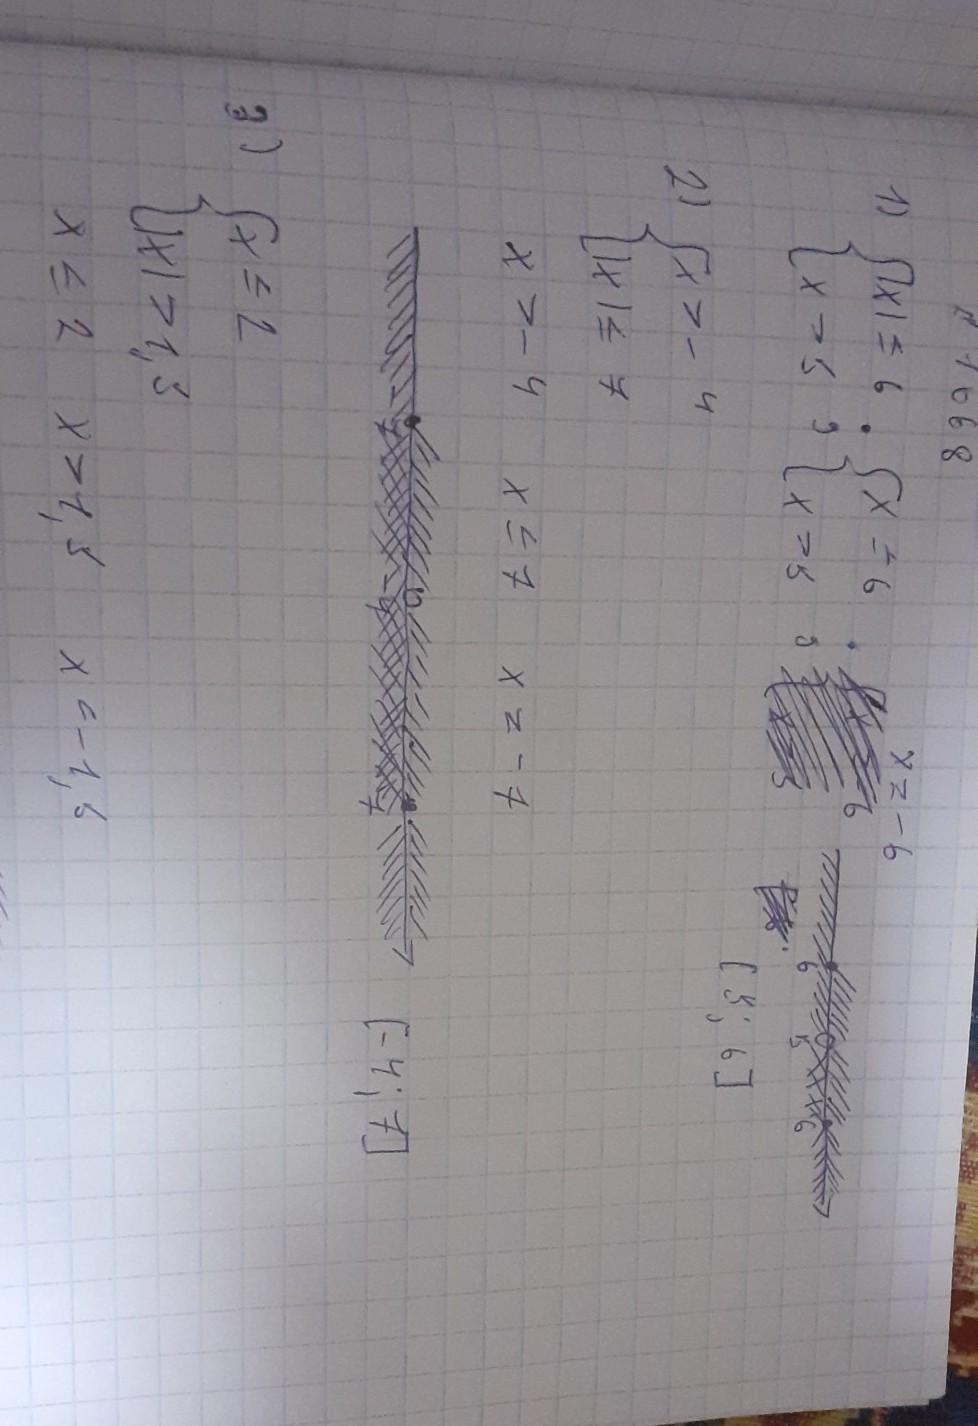 № 1068
1) {|x| ≤ 6 ; {x ≤ 6 ; x = -6
{x > 5 ; {x > 5 ;
6 5 6
[5; 6]
2) {x > -4
{|x| ≤ 7
x > -4 x ≤ 7 x = -7
-7 -4 7
[-4; 7]
3) {x ≤ 2
{|x| > 1,5
x ≤ 2 x > 1,5 x < -1,5